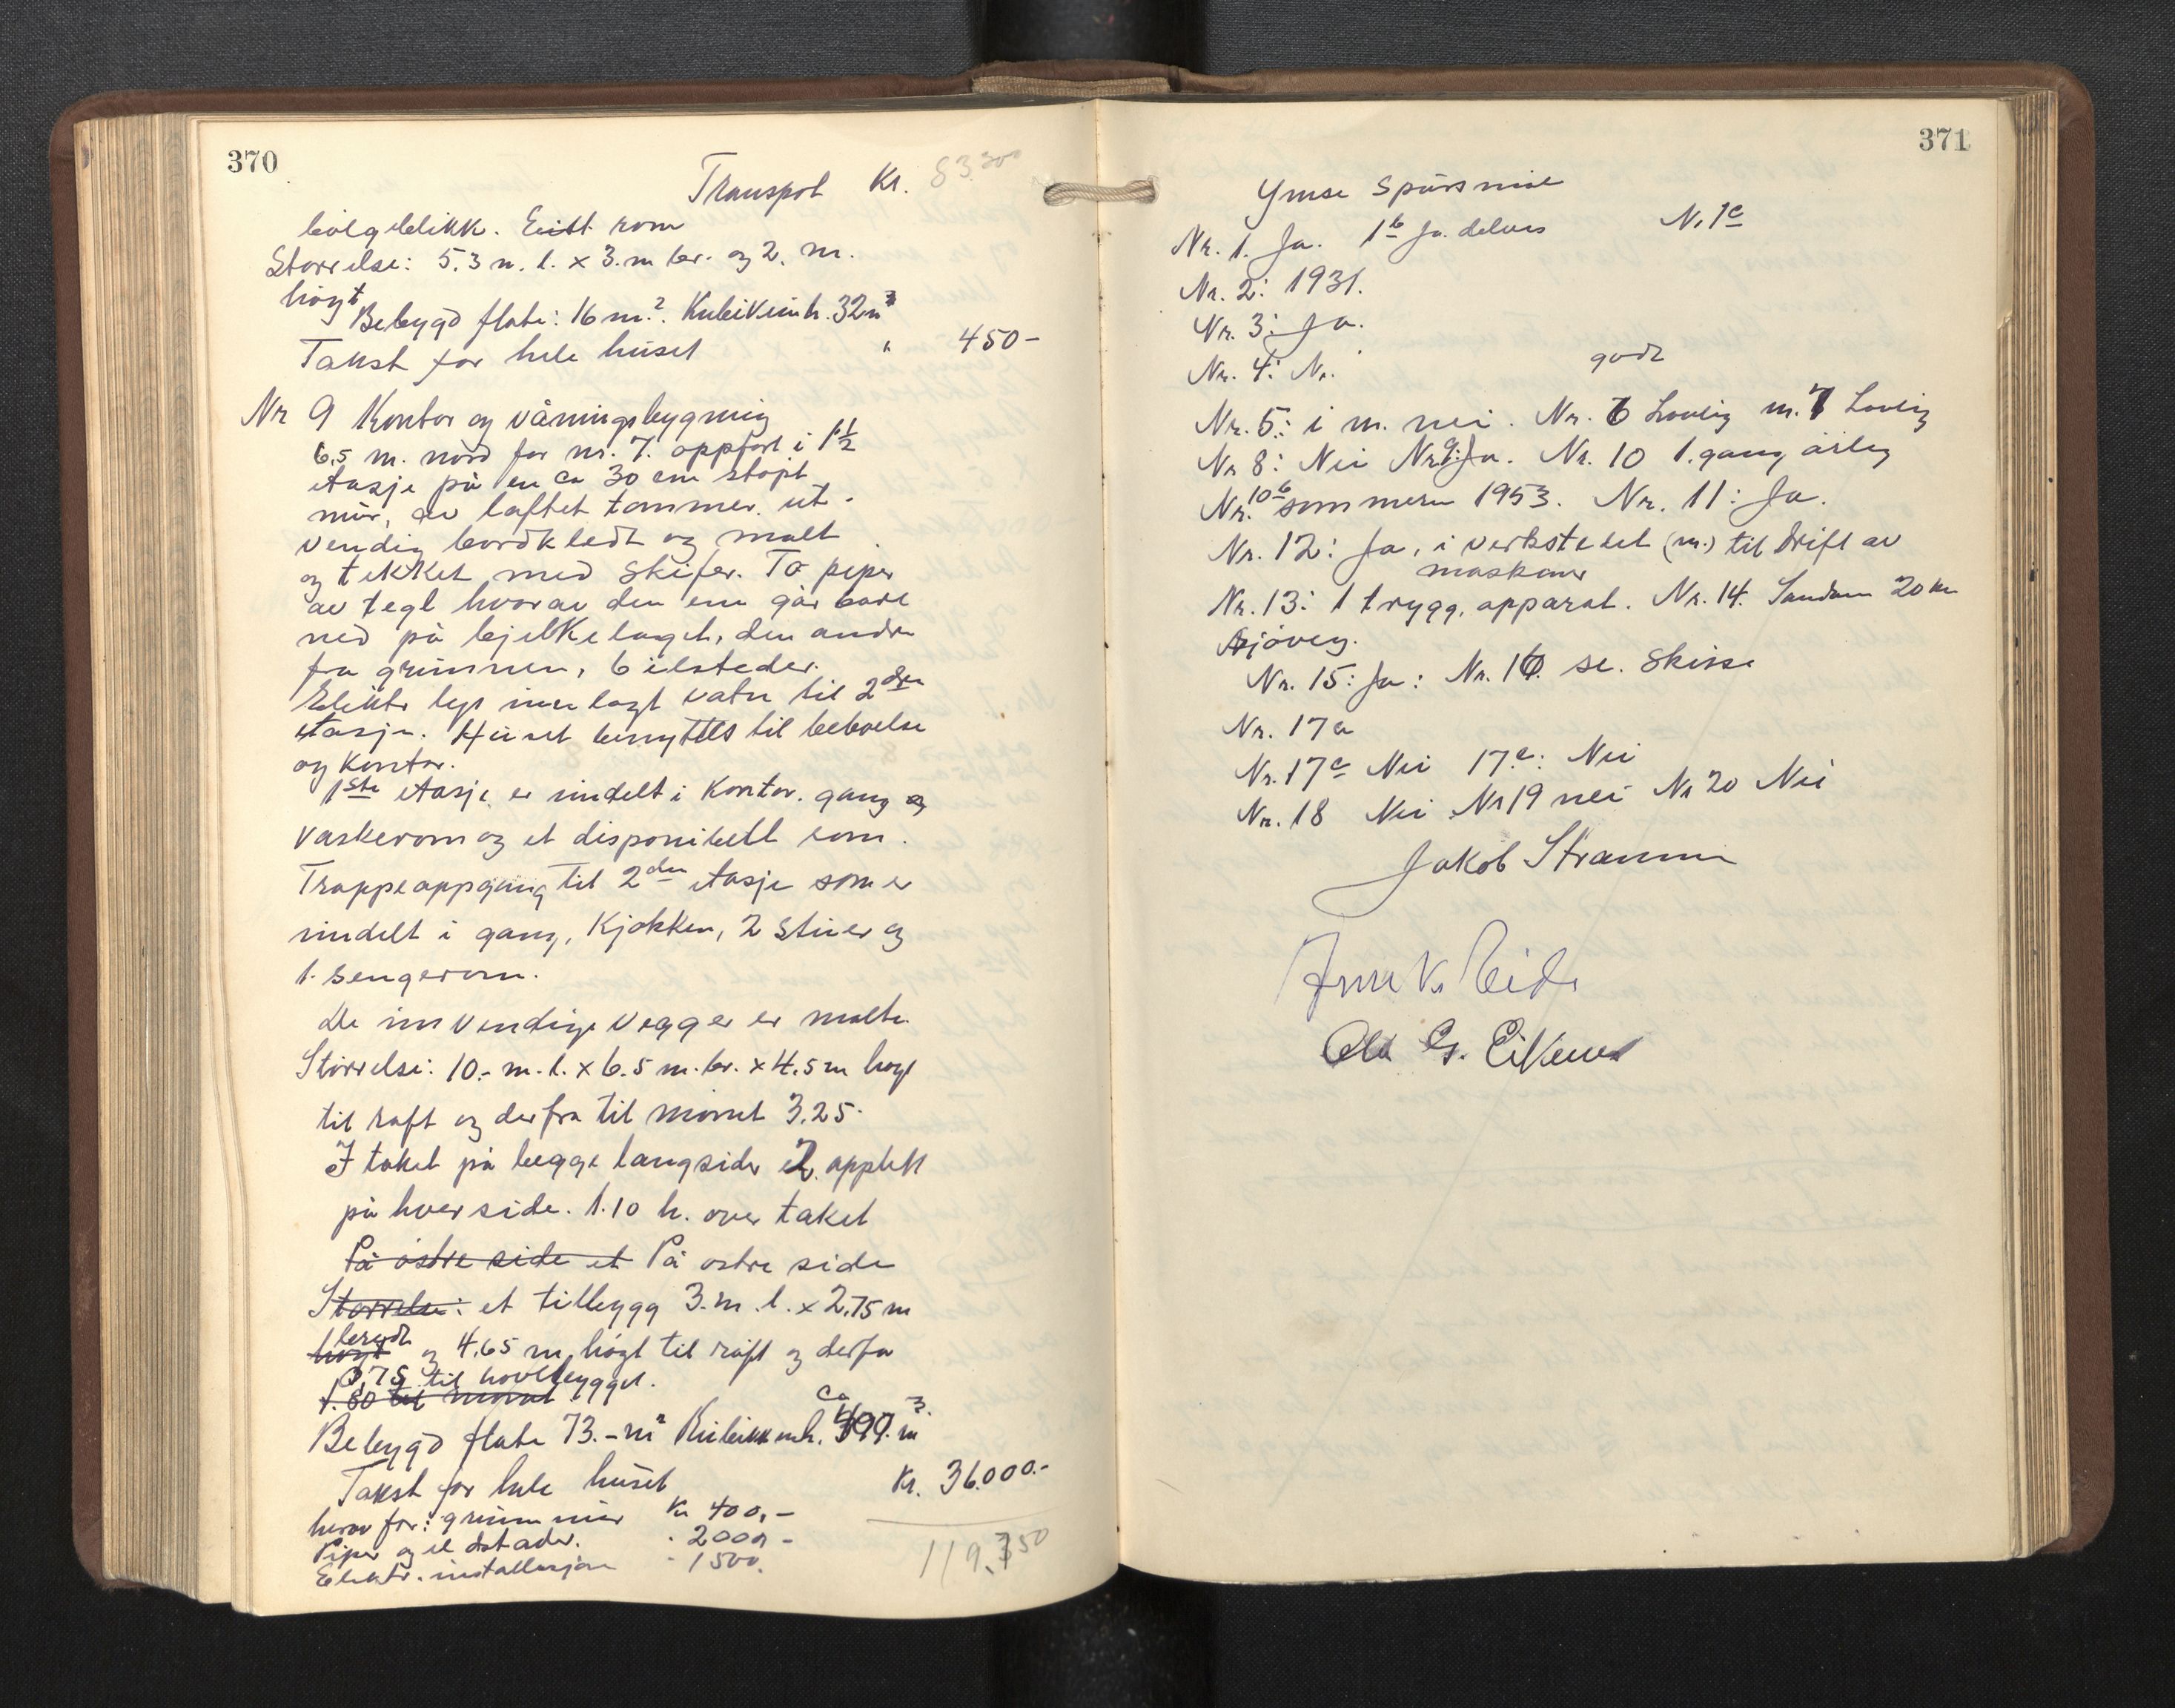 370
Transport Kr. 83.300
bölgeblikk. Eitt rom
Storrelse: 5.3 m. l. x 3. m br. og 2. m.
högt
Bebygd flate: 16 m². Kubikkinh. 32 m³
Takst for hele huset " 450-
Nr 9 Kontor og våningsbygning
6,5 m. nord for nr. 7. oppfört i 1 1/2
etasje på en ca 30 cm stöpt
mur, av laftet tømmer. ut-
vendig bordkledt og malt
og tekket med skifer. To piper
av tegl hvorav den ene går bare
ned på bjelkelaget, den andre
fra grunnen, 6 ilsteder.
Elektr lys innlagt vatn til 2den
etasje. Huset benyttes til beboelse
og kontor.
1ste etasje er inndelt i kontor. gang og
vaskerom og et disponibelt rom.
Trappeoppgang til 2den etasje som er
inndelt i gang, kjøkken, 2 stuer og
1. sengerom.
De innvendige vegger er malte.
Störrelse: 10.- m. l. x 6.5 m. br. x 4.5 m högt
til raft og derfra til mönet 3.25.
I taket på begge langsider 2. opplett
på hver side. 1.10 h. over taket
På östre side et På østre side
Störrelse: et tilbygg 3. m. l. x 2.75 m
bredt
högt og 4.65 m. högt til raft og derfra
0,75 til hovedbygget.
1.80 til mönet
Bebygd flate 73.- m² Kubikkinh. ca 499. m³.
Takst for hele huset Kr. 36.000.-
herav for: grunnmur Kr 400,-
Piper og ildstader. " 2000,-
Elektr. installasjon " 1500.
119.750
371
Ymse spörsmål
Nr. 1. Ja. 1b Ja. delvis N. 1c
Nr. 2: 1931.
Nr. 3: Ja.
Nr. 4: N.
godt
Nr. 5: i m. nei. Nr. 6 Lovlig m. 7 Lovlig
Nr 8: Nei Nr 9: Ja. Nr. 10 1. gang årlig
Nr. 10b sommeren 1953. Nr. 11: Ja.
Nr. 12: Ja, i verkstedet (m.) til drift av
maskener
Nr. 13: 1 trygg. apparat. Nr. 14. Sandane 20 km
sjöveg.
Nr. 15: Ja: Nr. 16. se. skisse
Nr. 17a
Nr. 17c Nei 17.e: Nei
Nr. 18 Nei Nr 19 nei Nr 20 Nei
Jakob Straumm
Arne K. Eide
Ola G. Eikenes